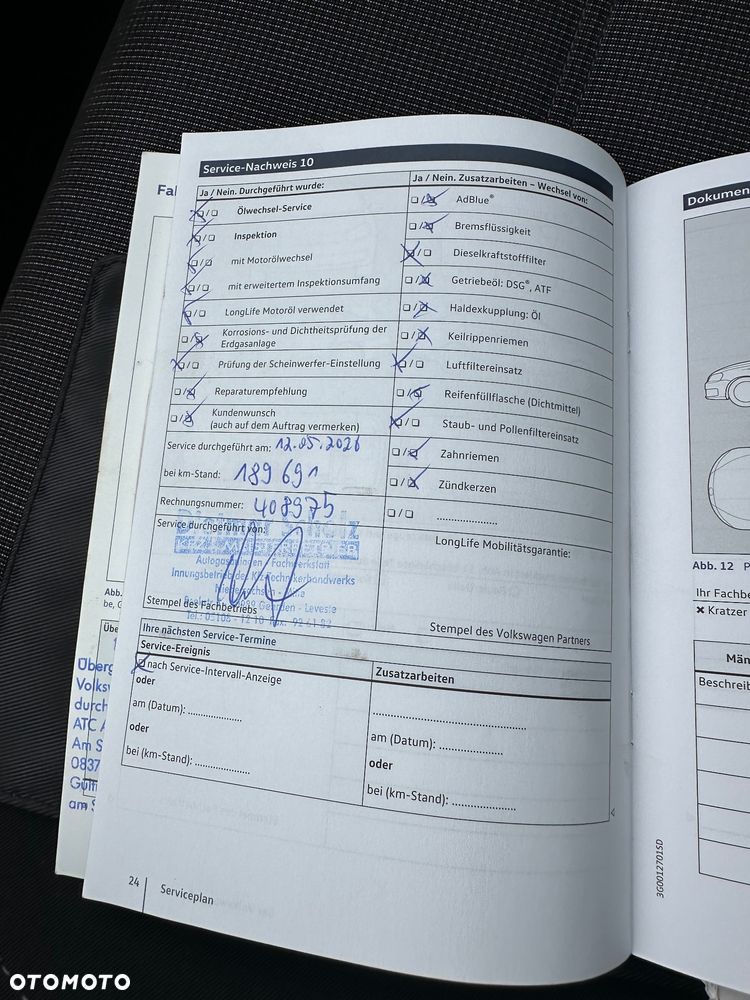 Service-Nachweis 10
Ja / Nein. Durchgeführt wurde:
Ölwechsel-Service
Inspektion
mit Motorölwechsel
mit erweitertem Inspektionsumfang
LongLife Motoröl verwendet
Korrosions- und Dichtheitsprüfung der
Erdgasanlage
Prüfung der Scheinwerfer-Einstellung
Reparaturempfehlung
Kundenwunsch
(auch auf dem Auftrag vermerken)
Service durchgeführt am: 12.05.2026
bei km-Stand: 189 691
Rechnungsnummer: 408975
Service durchgeführt von:
Autogasanlagen / Fachwerkstatt
Innungsbetrieb des Kfz-Technikerhandwerks
Stempel des Fachbetriebs
Ja / Nein. Zusatzarbeiten – Wechsel von:
AdBlue®
Bremsflüssigkeit
Dieselkraftstofffilter
Getriebeöl: DSG®, ATF
Haldexkupplung: Öl
Keilrippenriemen
Luftfiltereinsatz
Reifenfüllflasche (Dichtmittel)
Staub- und Pollenfiltereinsatz
Zahnriemen
Zündkerzen
....................
LongLife Mobilitätsgarantie:
Stempel des Volkswagen Partners
Ihre nächsten Service-Termine
Service-Ereignis
nach Service-Intervall-Anzeige
oder
am (Datum): ..................
oder
bei (km-Stand): ..................
Zusatzarbeiten
..................................................
am (Datum): .....................
oder
bei (km-Stand): .....................
24
Serviceplan
Fal
Abb.
be, G
Überg
Volksw
durch
ATC A
Am S
0837
am S
Dokumen
Abb. 12 P
Ihr Fachbe
✖ Kratzer
Män
Beschreib
3G0012701SD
OTOMOTO